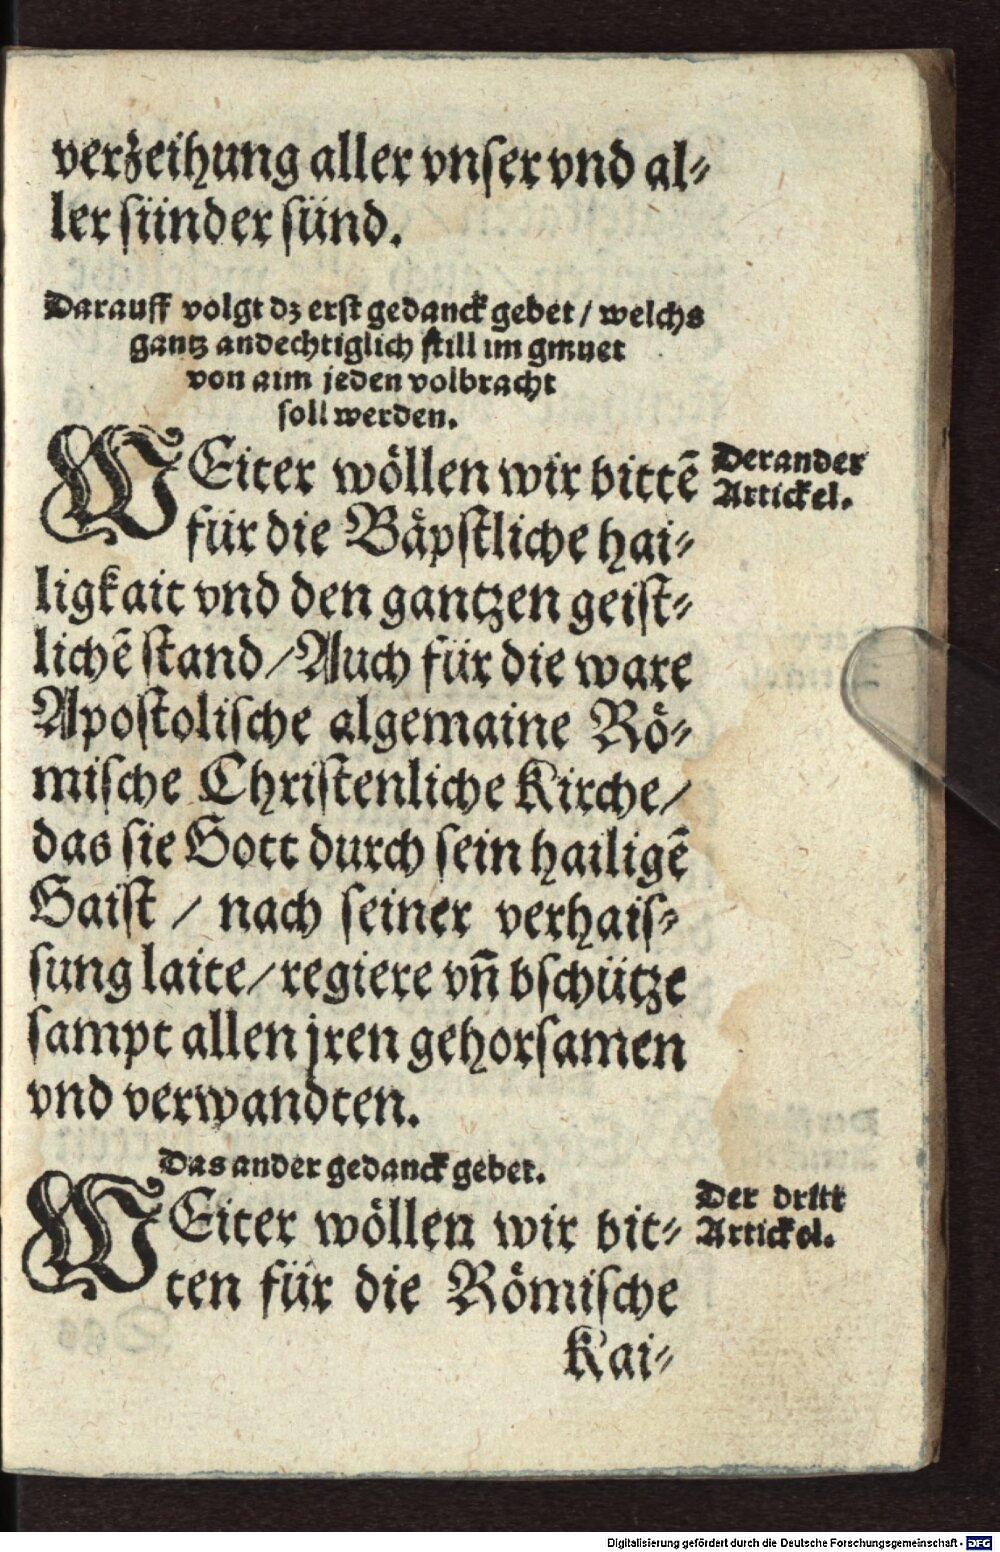 verzeihung aller vnser vnd al⸗
ler sünder sünd.
Darauff volgt dz erst gedanck gebet / welchs
gantz andechtiglich still im gmuet
von aim jeden volbracht
soll werden.
WEiter wöllen wir bittē
für die Bäpstliche hai⸗
ligkait vnd den gantzen geist⸗
lichē stand / Auch für die ware
Apostolische algemaine Rö⸗
mische Christenliche Kirche /
das sie Gott durch sein hailigē
Gaist / nach seiner verhais⸗
sung laite / regiere vn̄ bschütze
sampt allen jren gehorsamen
vnd verwandten.
Der ander
Artickel.
Das ander gedanck gebet.
WEiter wöllen wir bit⸗
ten für die Römische
Kai⸗
Der dritt
Artickel.
Digitalisierung gefördert durch die Deutsche Forschungsgemeinschaft - DFG